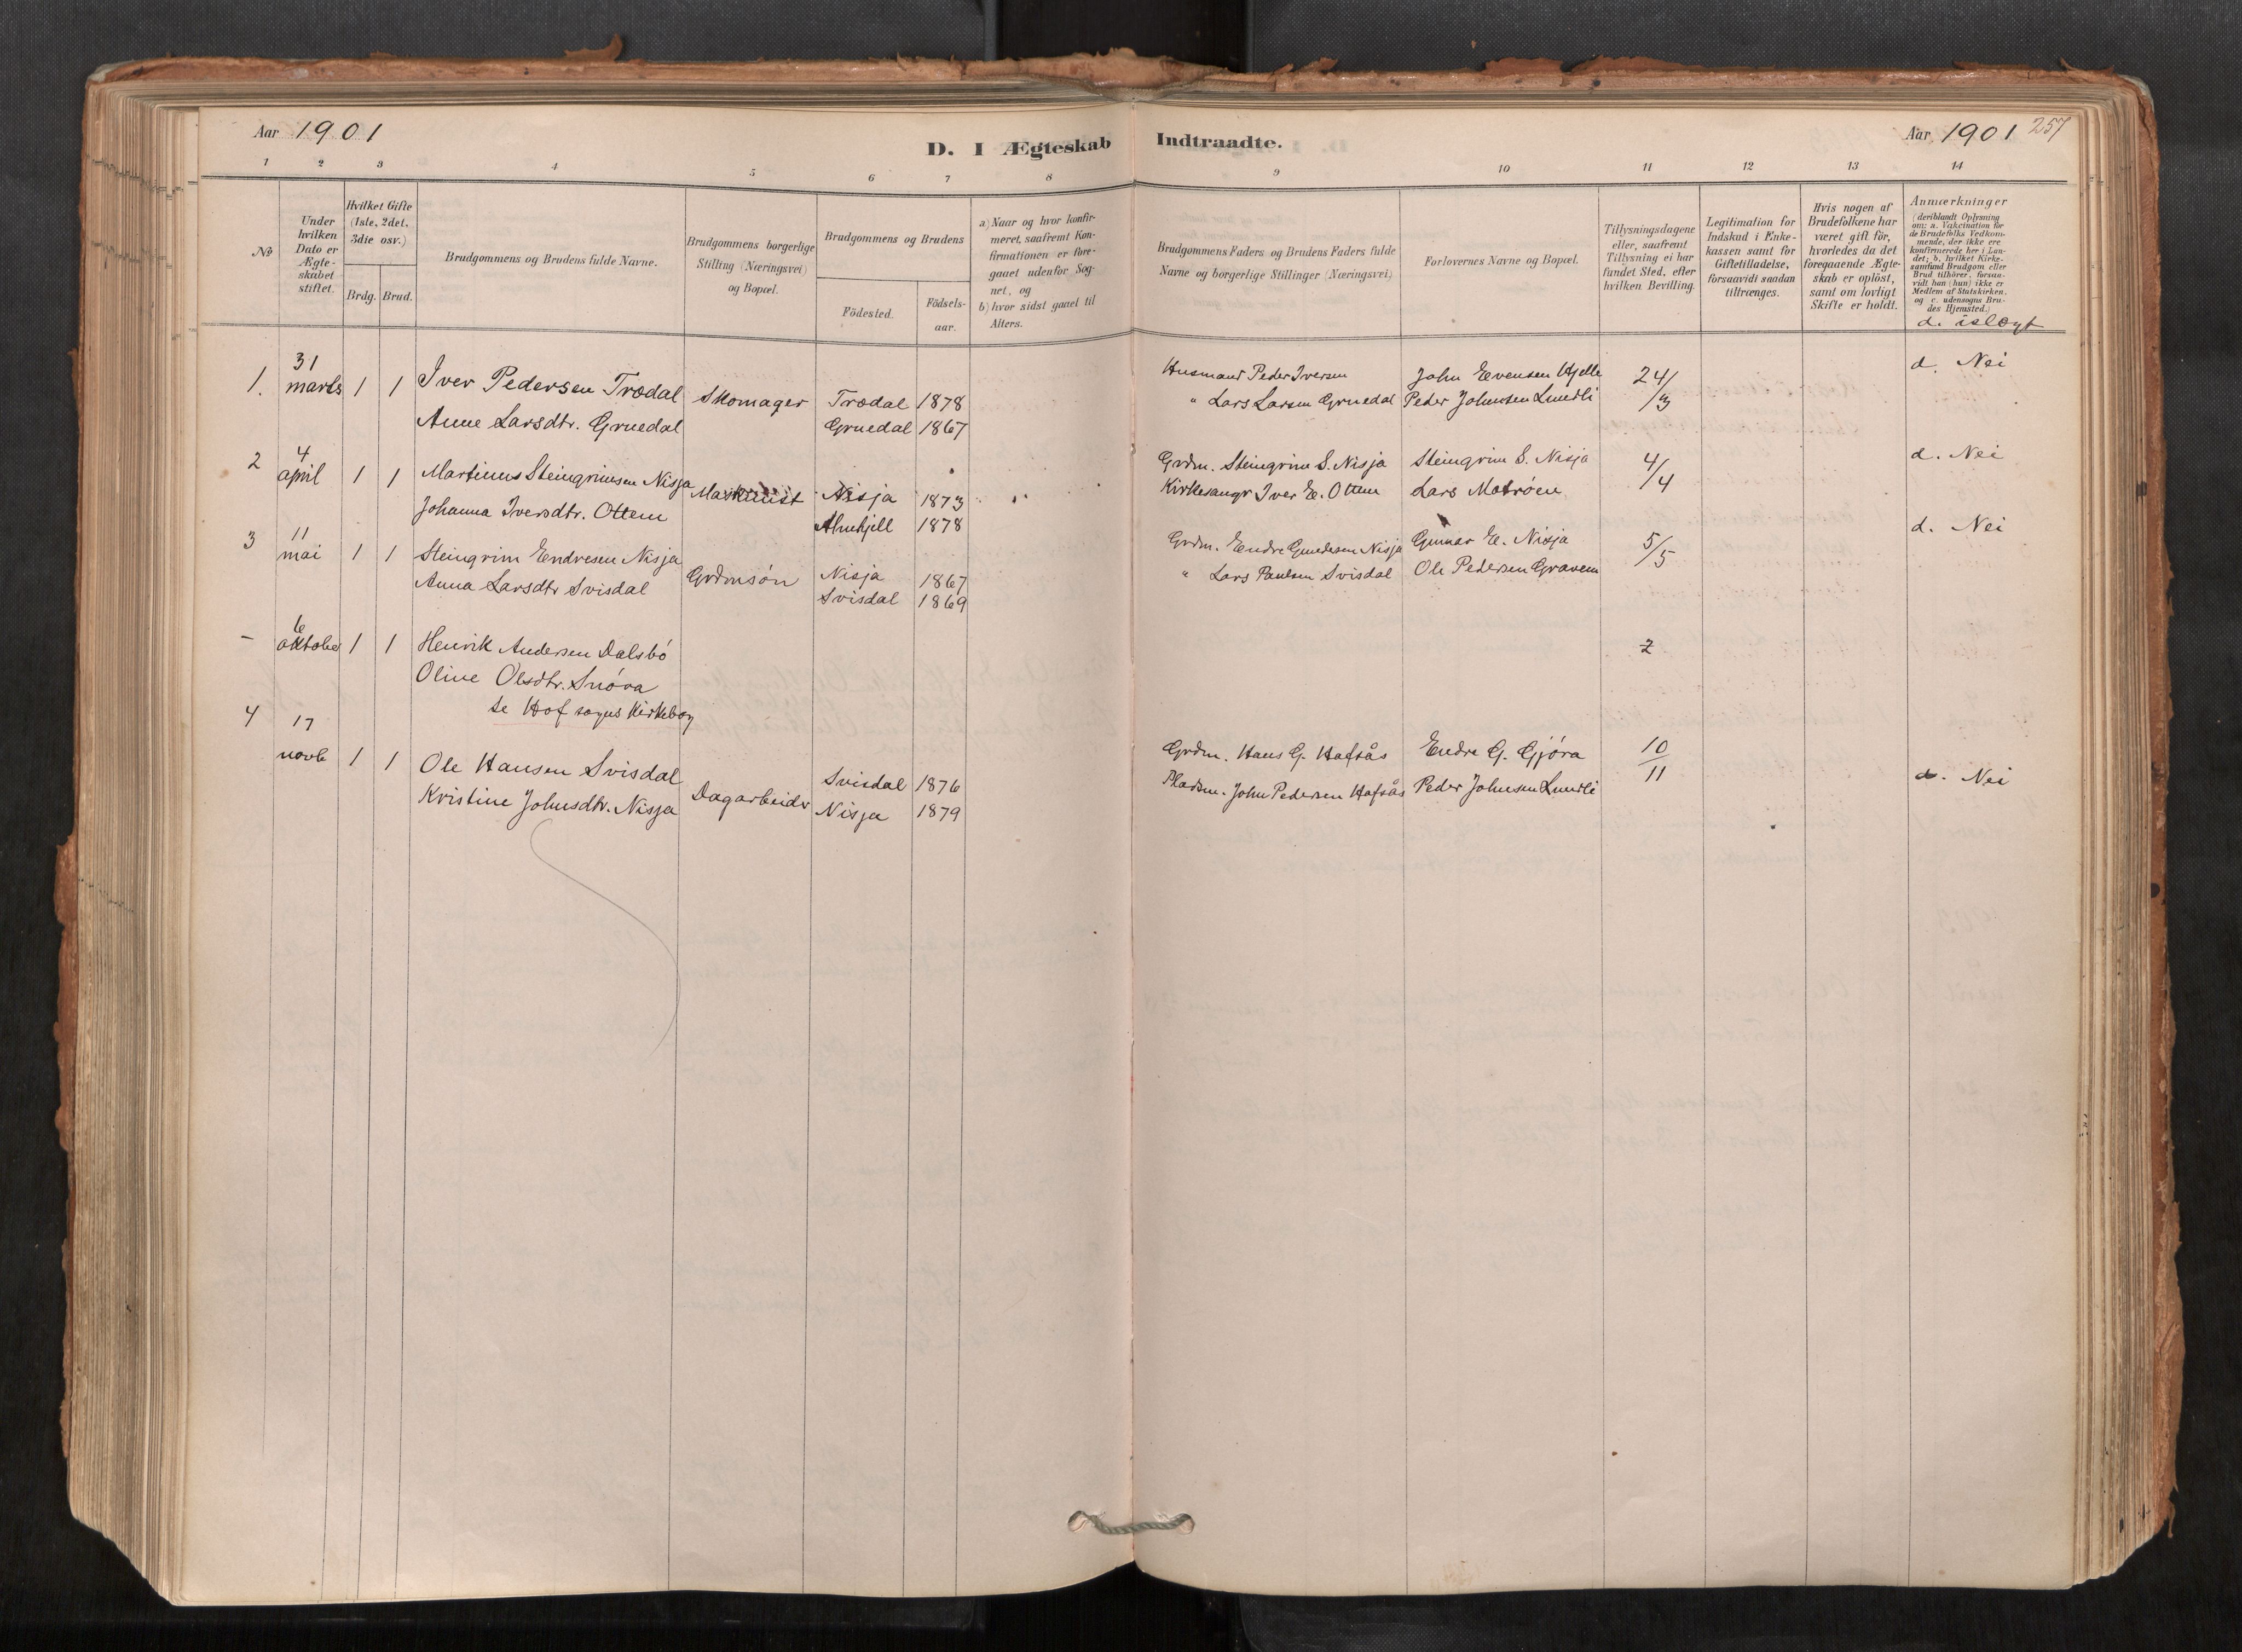 Aar 1901
D. I Ægteskab Indtraadte.
Aar 1901 257
1 2 3 4 5 6 7 8 9 10 11 12 13 14
No
Under hvilken Dato er Ægte-skabet stiftet.
Hvilket Gifte (1ste, 2det, 3die osv.)
Brdg. Brud.
Brudgommens og Brudens fulde Navne.
Brudgommens borgerlige Stilling (Næringsvei) og Bopæl.
Brudgommens og Brudens
Födested.
Födsels-aar.
a) Naar og hvor konfir-
meret, saafremt Kon-
firmationen er fore-
gaaet udenfor Sog-
net, og
b) hvor sidst gaaet til
Alters.
Brudgommens Faders og Brudens Faders fulde
Navne og borgerlige Stillinger (Næringsvei)
Forlovernes Navne og Bopæl.
Tillysningsdagene
eller, saafremt
Tillysning ei har
fundet Sted, efter
hvilken Bevilling.
Legitimation for
Indskud i Enke-
kassen samt for
Giftetilladelse,
forsaavidt saadan
tiltrænges.
Hvis nogen af
Brudefolkene har
været gift för,
hvorledes da det
foregaaende Ægte-
skab er oplöst,
samt om lovligt
Skifte er holdt.
Anmærkninger
(deriblandt Oplysning
om: a. Vakcination for
de Brudefolks Vedkom-
mende, der ikke ere
konfirmerede her i Lan-
det; b. hvilket Kirke-
samfund Brudgom eller
Brud tilhörer, forsaa-
vidt han (hun) ikke er
Medlem af Statskirken,
og c. udensogns Bru-
des Hjemsted.)
d. islægt
1. 31 marts 1 1 Iver Pedersen Trædal Skomager Trædal 1878 Husmand Peder Iversen John Evensen Hjelle 24/3 d. Nei
Anne Larsdtr. Gruedal Gruedal 1867 " Lars Larsen Gruedal Peder Johnsen Lundli
2 4 april 1 1 Martinus Steingrimsen Nisja Maskinist Nisja 1873 Grdm. Steingrim S. Nisja Steingrim S. Nisja 4/4 d. Nei
Johanna Iversdtr. Ottem Almskjell 1878 Kirkesangr Iver E. Ottem Lars Motrøen
3 11 mai 1 1 Steingrim Endresen Nisja Grdmsön Nisja 1867 Grdm. Endre Gundersen Nisja Gunnar E. Nisja 5/5 d. Nei
Anna Larsdtr Svisdal Svisdal 1869 " Lars Paulsen Svisdal Ole Pedersen Gravem
- 6 oktober 1 1 Henrik Andersen Dalsbó
Oline Olsdtr. Snóva
se Hof sogns Kirkebog
4 17 novb 1 1 Ole Hansen Svisdal Dagarbeider Svisdal 1876 Grdm. Hans G. Hafsås Endre G. Gjóra 10/11 d. Nei
Kristine Johnsdtr. Nisja Nisja 1879 Pladsm. John Pedersen Hafsås Peder Johnsen Lundli